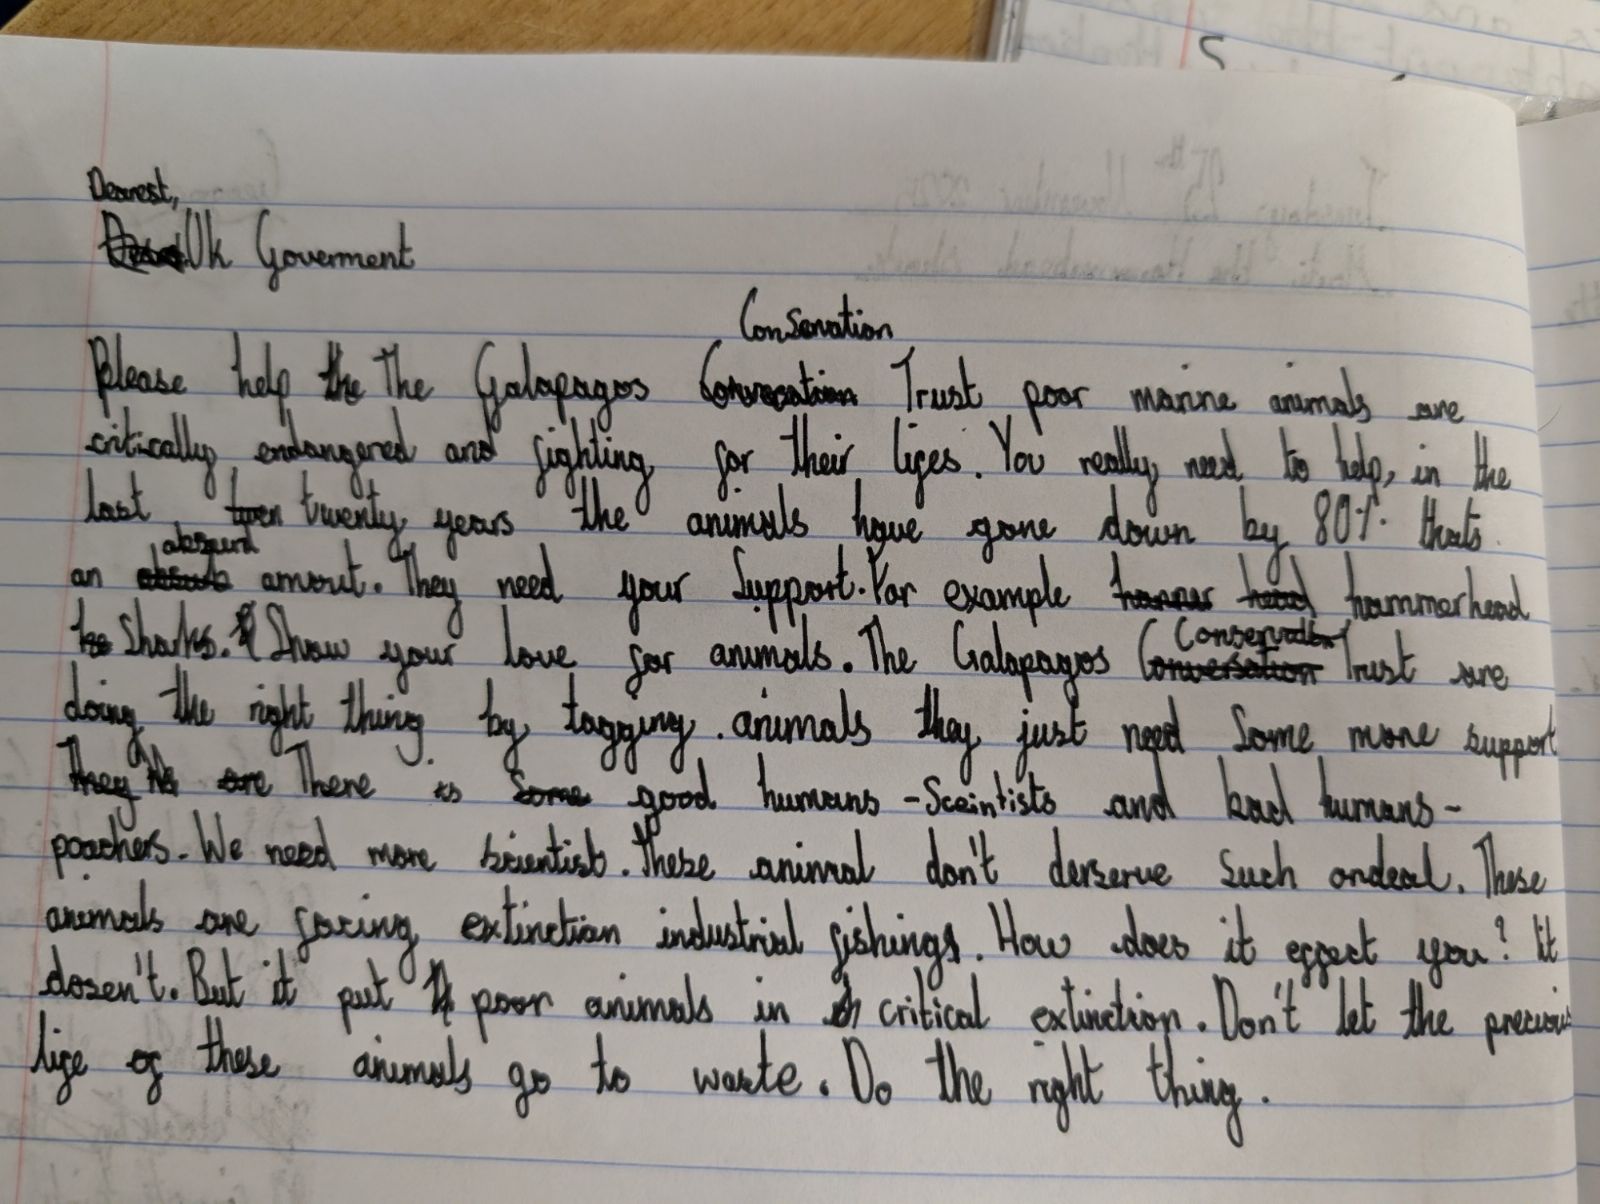 Dearest,
Uk Goverment
Conservation
Please help the The Galapagos Conversation Trust poor marine animals are
critically endangered and fighting for their lifes. You really need to help, in the
last twenty years the animals have gone down by 80% thats
absurd
an amout. They need your Support. For example hammer head hammerhead
Sharks. Show your love for animals. The Galapagos Conversation Conservation Trust are
doing the right thing by tagging animals they just need Some more support
They are There is some good humans - Sceintists and bad humans -
poachers. We need more scientist. These animal don't derserve Such ordeal. These
animals are facing extinction industrial fishings. How does it effect you? It
dosen't. But it put poor animals in critical extinction. Don't let the precious
life of these animals go to waste. Do the right thing.